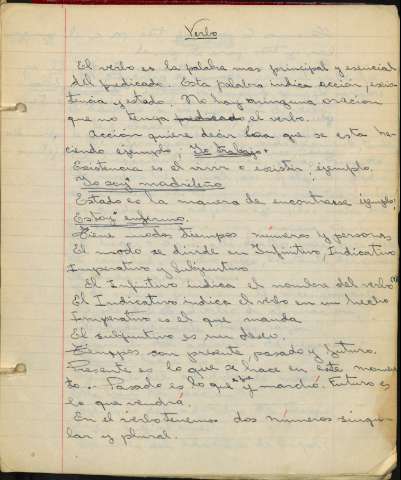 Verbo
El verbo es la palabra mas principal y esencial
del predicado. Esta palabra indica acción, exis
tencia y estado. No hay ninguna oracion
que no tenga predicado el verbo.
Acción quiere decir que se esta ha-
ciendo ejemplo; Yo trabajo.
Existencia es el vivir o existir; ejemplo.
Yo soy madrileño
Estado es la manera de encontrarse ejemplo;
Estoy enfermo.
Tiene modos tiempos números y personas
El modo se divide en Infinitivo, Indicativo
Imperativo y Subjuntivo
El Infinitivo indica el nombre del verbo
El Indicativo indica el verbo en un hecho
Imperativo es el que manda
El subjuntivo es un deseo.
Tiempos son presente, pasado y futuro.
Presente es lo que se hace en este momen
to. Pasado es lo que y marchó. Futuro es
lo que vendrá.
En el verbo tenemos dos números singu
lar y plural.